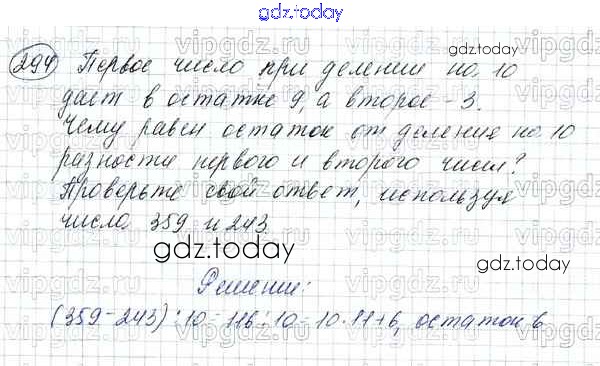 gdz.today
294 Первое число при делении на 10
даёт в остатке 9, а второе - 3.
Чему равен остаток от деления на 10
разности первого и второго чисел?
Проверьте свой ответ, используя
числа 359 и 243
gdz.today
Решение:
(359-243):10=116:10=10·11+6, остаток 6